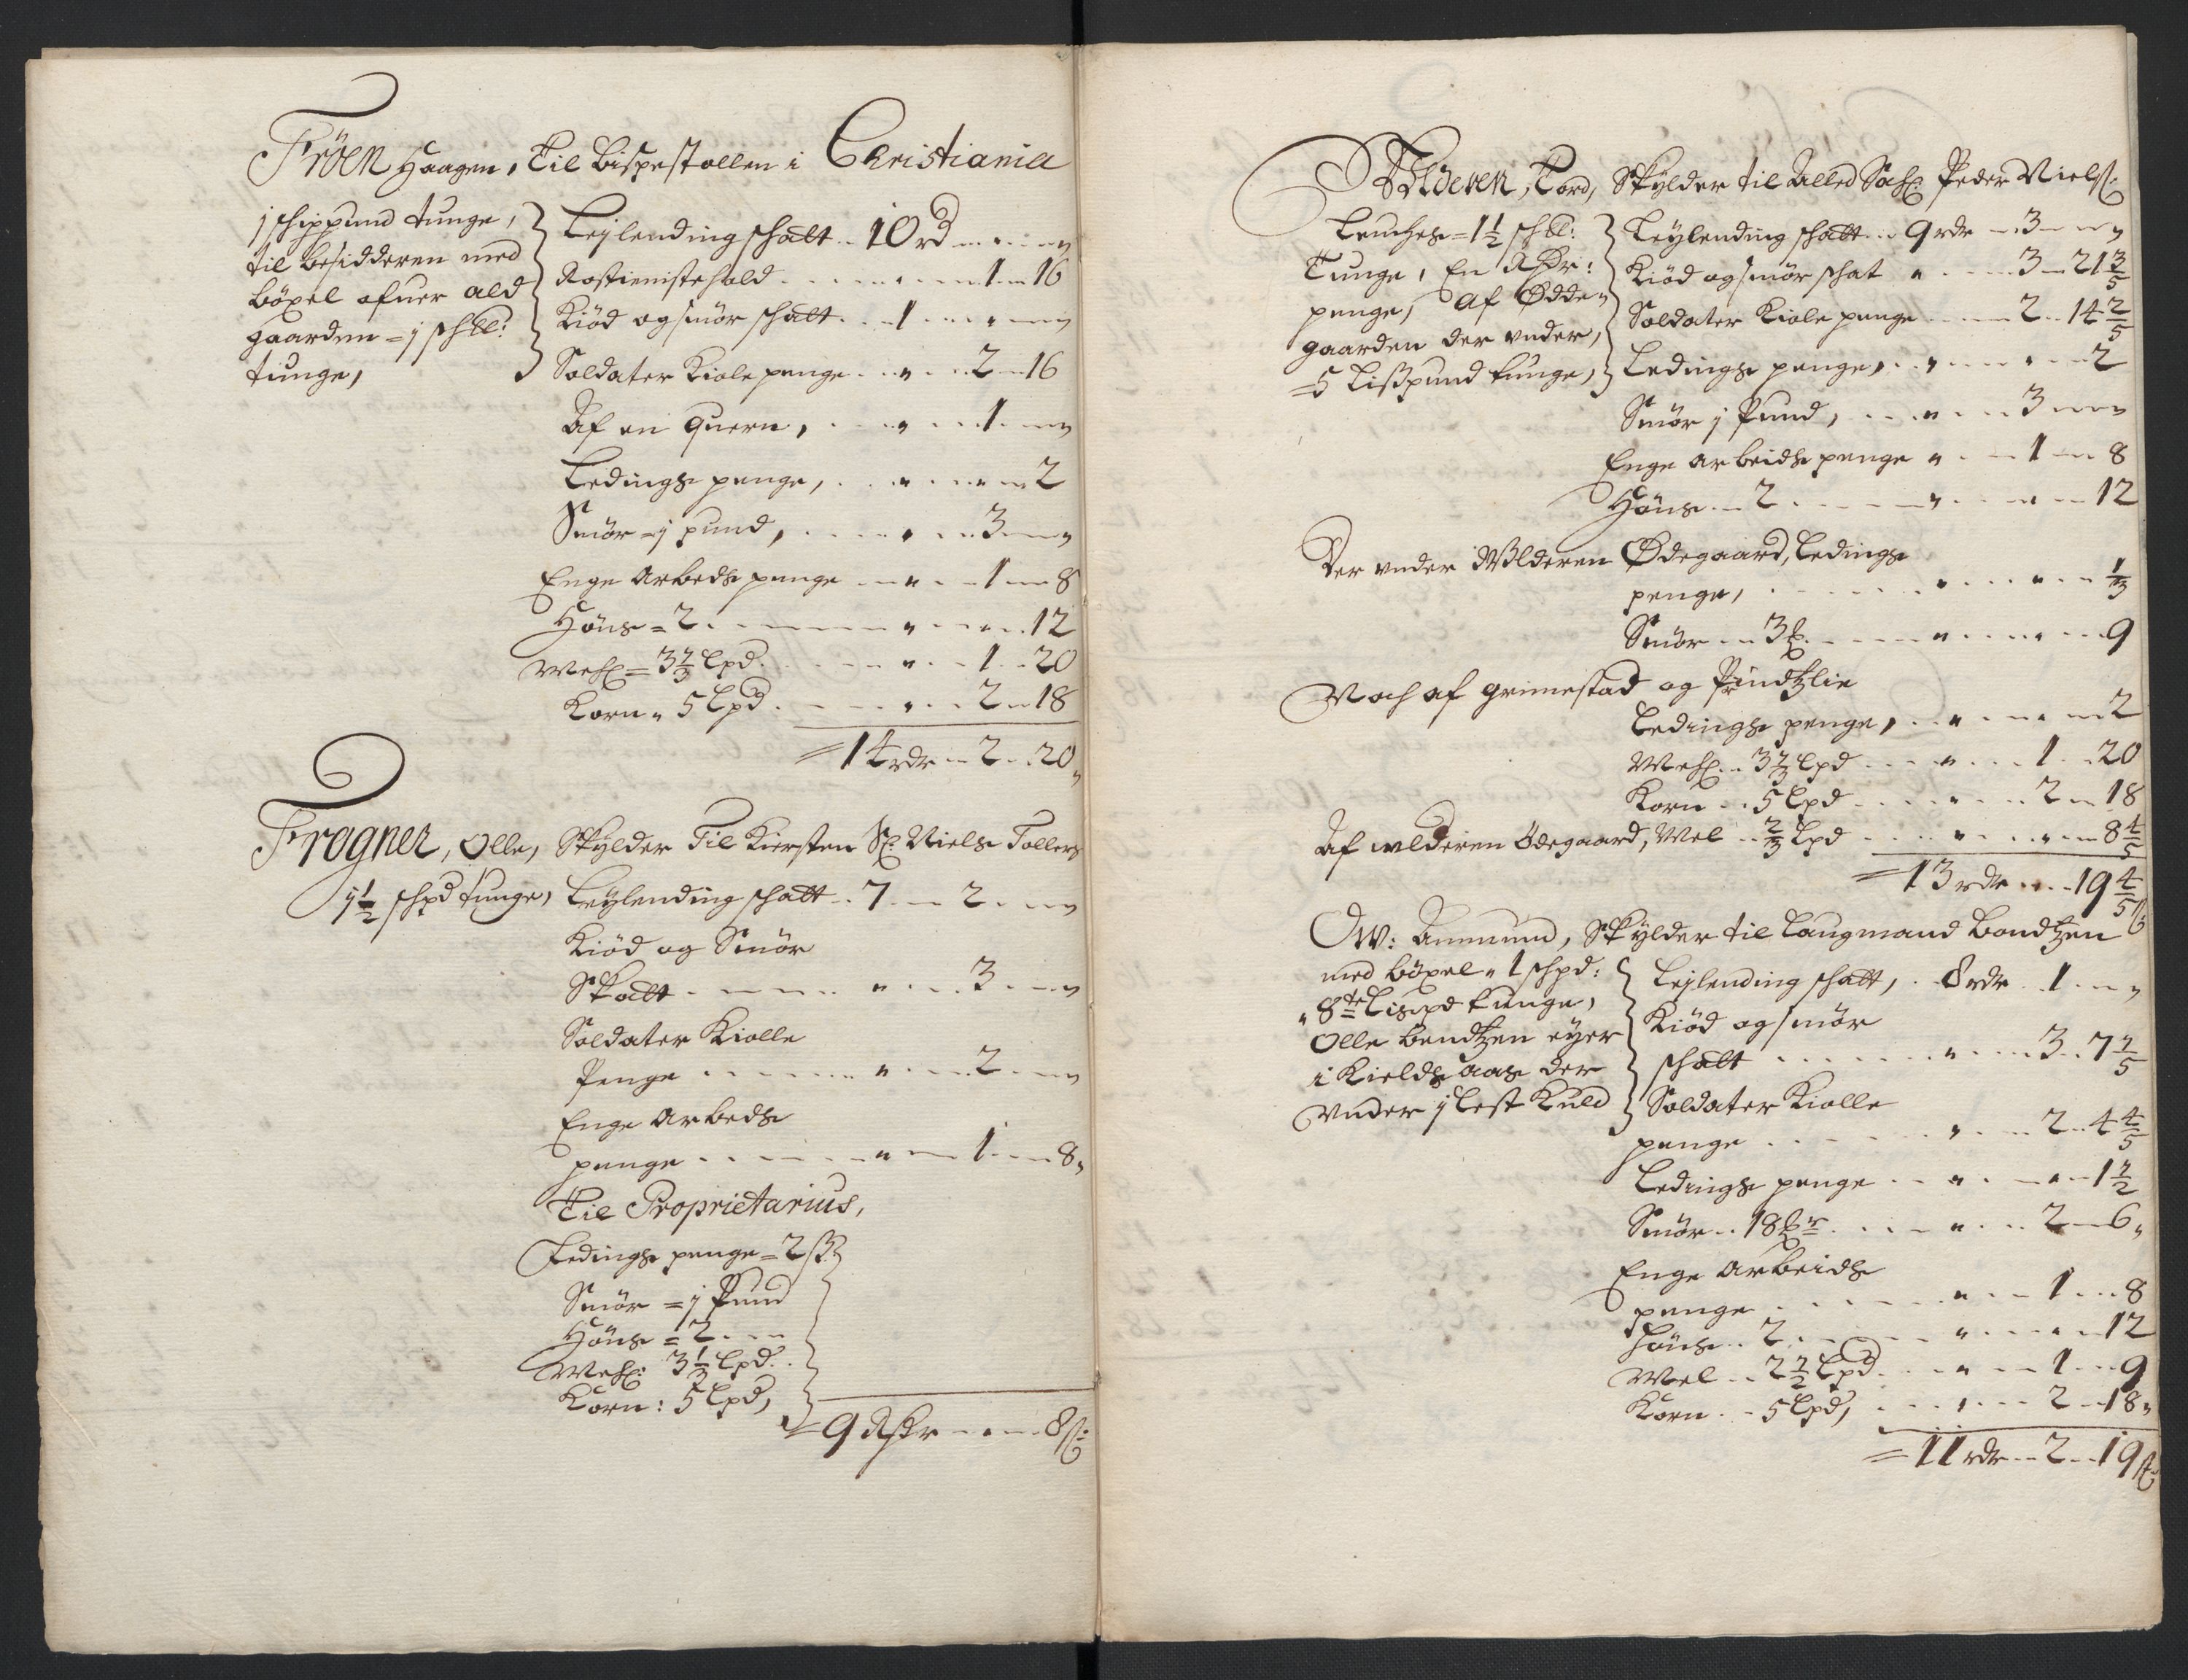 Fröen Haagen, Til Bispestollen i Christiania
j schippund tunge,
til besidderen med
böxel ofuer ald
gaarden = j schll:
tunge,
Leÿlending schatt .. 10 rd
Rostienistehold 1 - 16
Kiöd og smör schatt 1
Soldater Kiole penge 2 - 16
Af en quern, 1
Ledings penge, 2
Smör = j pund, 3
Enge Arbeds penge 1 - 8
Höns = 2 12
= 3 1/3 Lpd. 1 - 20
Korn 5 Lpd 2 - 18
= 14 rdr - 2 - 20
Frogner, Olle, Skÿlder Til Kiersten Sl: Niels Tollers
1 1/2 schpd tunge, Leÿlending schatt .. 7 - 2
Kiöd og Smör
Skatt 3
Soldater Kiolle
Penge 2
Enge Arbeds
penge 1 - 8
Til Proprietarius,
Ledings penge = 2 ß
Smör = j Pund
Höns = 2
3 1/3 Lpd.
Korn: 5 Lpd,
= 9 Rdr - 8 ß
Wlderen, Tord, Skÿlder til Peder Nielß:
Leuches = 1 1/2 schll:
Tunge, En Rdr:
penge, af Ödde
gaarden der vnder,
= 5 Lißpund tunge,
Leÿlending schatt 9 rdr - 3
Kiöd og smör schat 3 - 21 3/5
Soldater Kiole penge 2 - 14 2/5
Ledings penge, 2
Smör j Pund, 3
Enge arbeids penge 1 - 8
Höns - 2 12
Der vnder Wlderen Ödegaard, Ledings
penge, 1/3
Smör - 3 9
Noch af grimestad og Prindtzlie
Ledings penge, 2
3 1/3 Lpd 1 - 20
Korn 5 Lpd 2 - 18
Af wlderen Ödegaard, Mel 2/3 Lpd 8 4/5
= 13 rdr - 19 4/5 ß
Ow: Ammund, Skÿlder til Laugmand Bondtzen
med böxel 1 schpd:
8te Lispd tunge,
Olle bendtzen eÿer
i Kields aas der
vnder j Lest Kuld
Leÿlending schatt, 8 rdr 1
Kiöd og smör
schatt 3 - 7 1/5
Soldater Kiolle
penge 2 - 4 4/5
Ledings penge 1 1/2
Smör .. 18 2 - 6
Enge Arbeids
penge 1 - 8
höns .. 2 12
Mel .. 2 1/2 Lpd 1 - 9
Korn .. 5 Lpd, 2 - 18
= 11 rdr - 2 - 19 ß